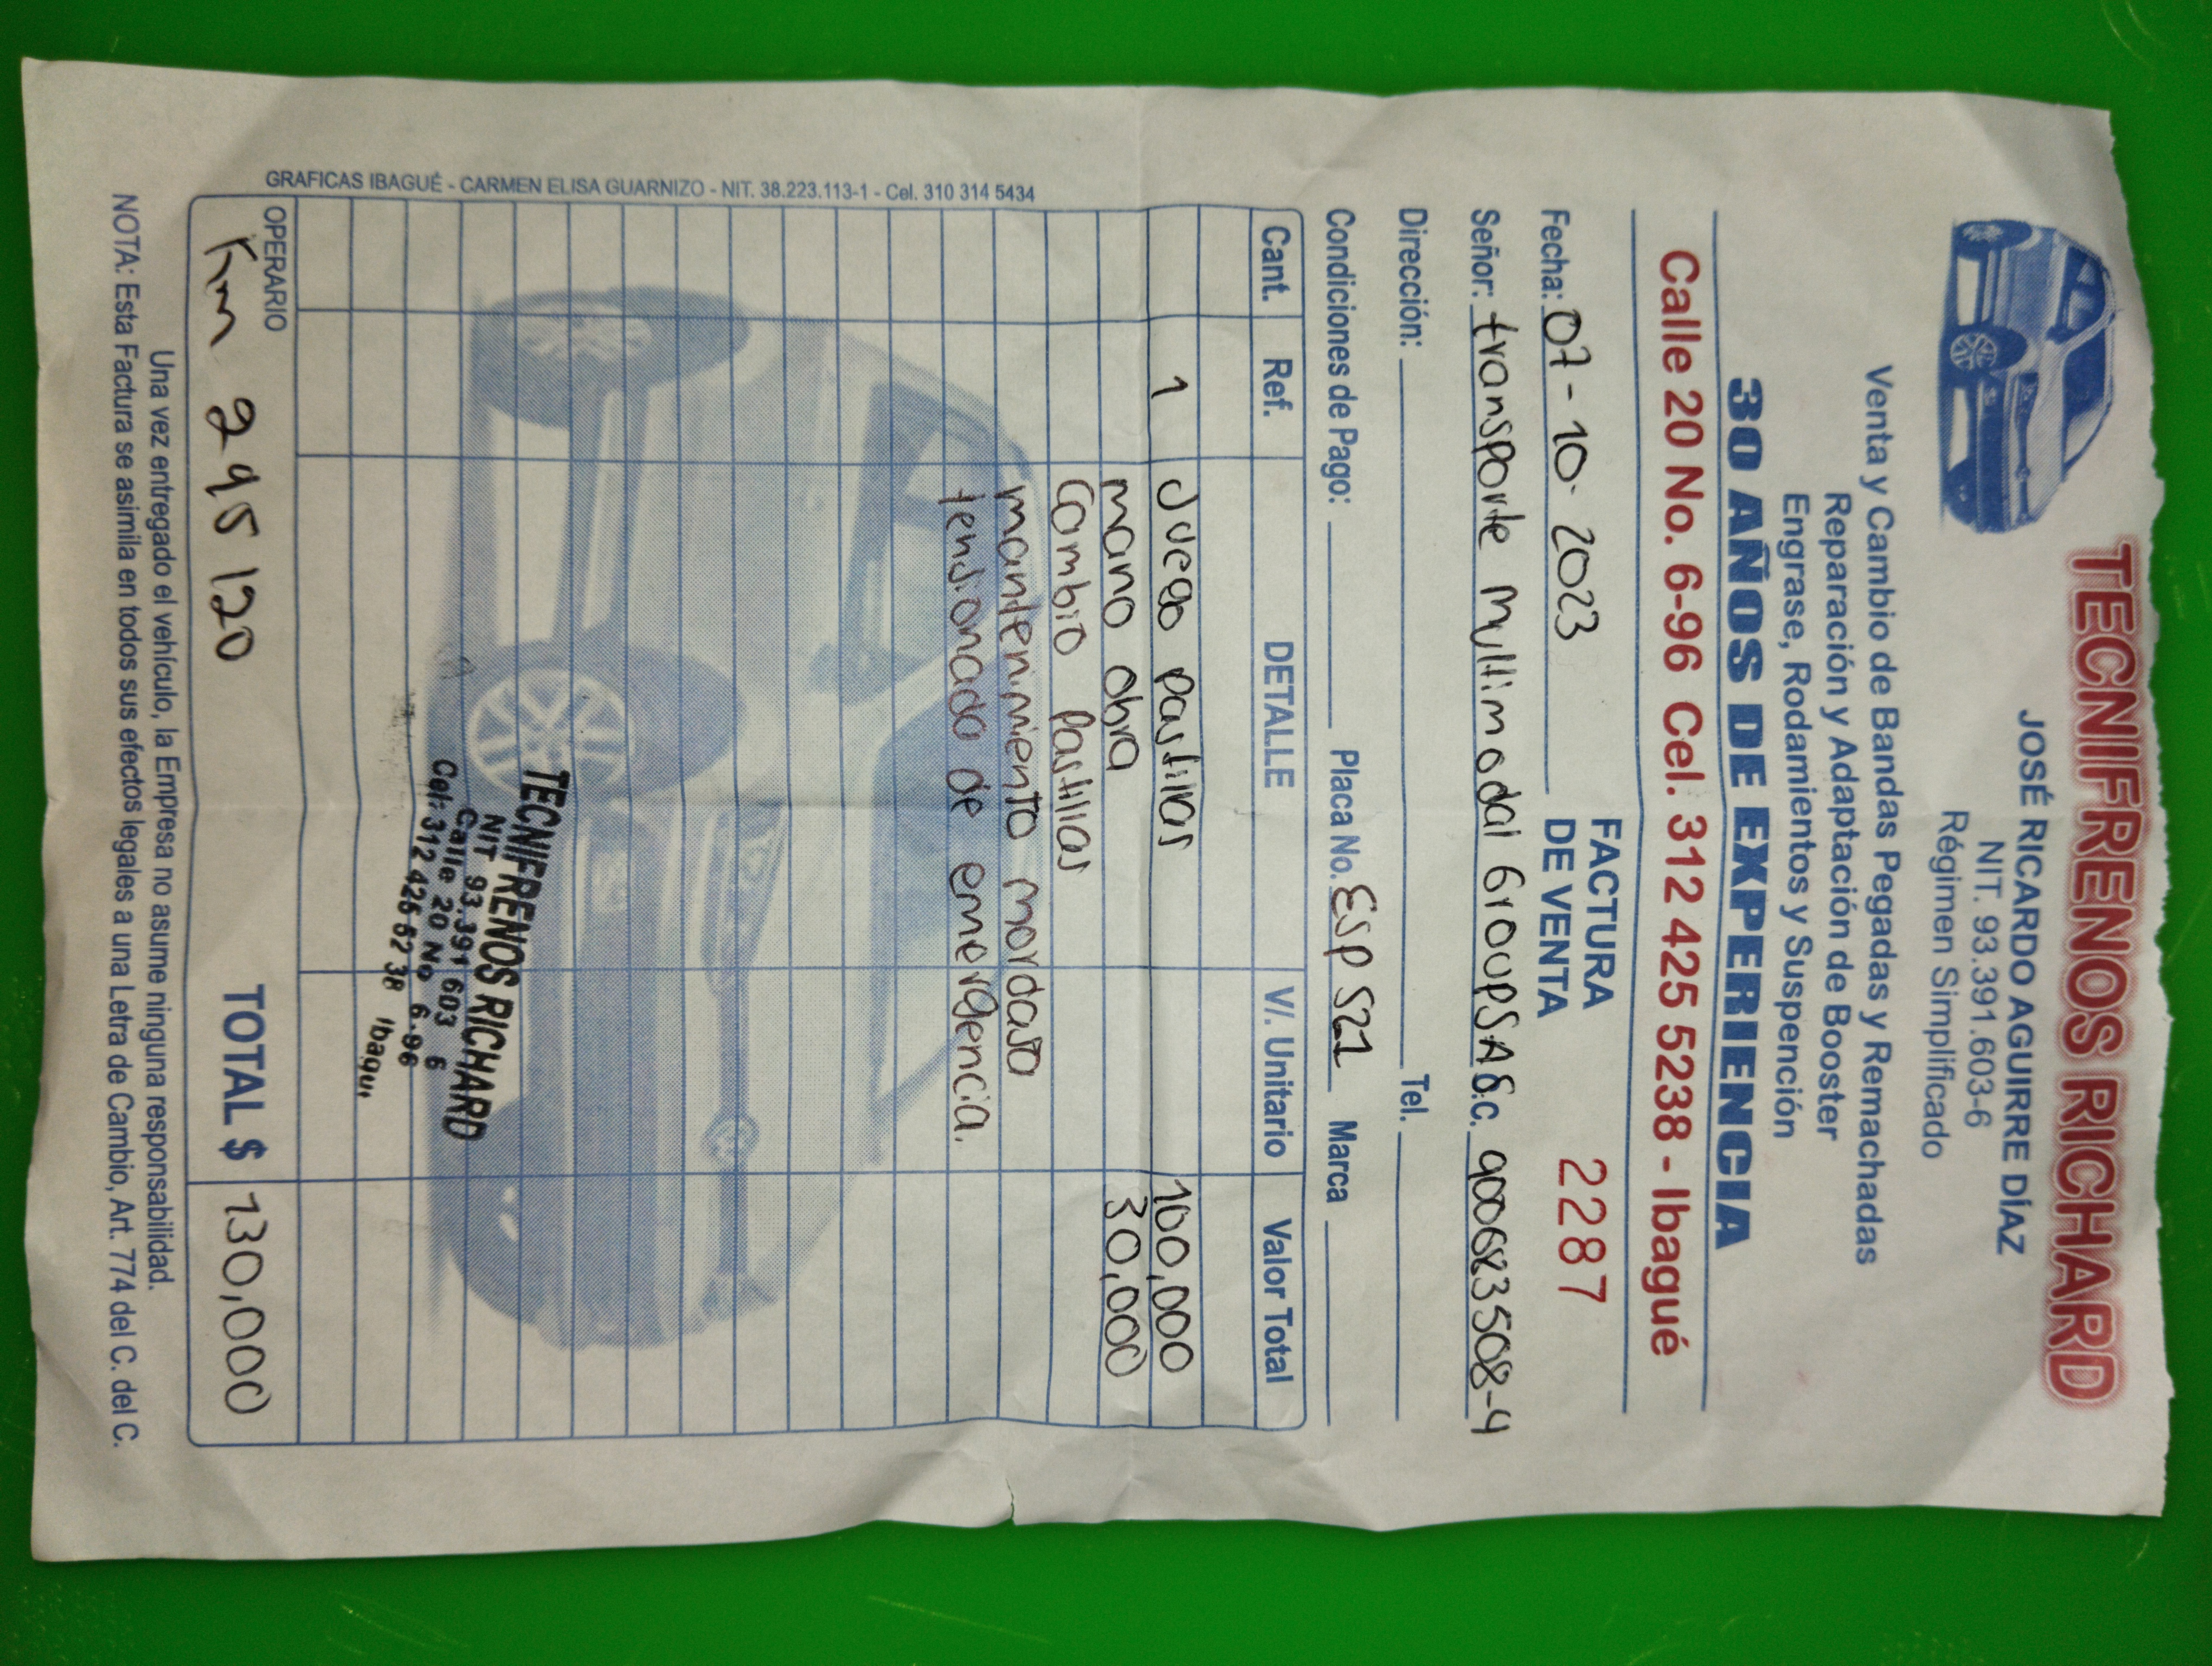 TECNIFRENOS RICHARD
JOSÉ RICARDO AGUIRRE DÍAZ
NIT. 93.391.603-6
Régimen Simplificado
Venta y Cambio de Bandas Pegadas y Remachadas
Reparación y Adaptación de Booster
Engrase, Rodamientos y Suspención
30 AÑOS DE EXPERIENCIA
Calle 20 No. 6-96 Cel. 312 425 5238 - Ibagué
Fecha: 07-10-2023 FACTURA DE VENTA 2287
Señor: transporte Multimodal GroupSAS.c. 900683508-4
Dirección: Tel.
Condiciones de Pago: Placa No. Esp 521 Marca
Cant. Ref. DETALLE V/. Unitario Valor Total
1 Juego pastillas 100,000
mano obra 30,000
Cambio Pastillas
mantenimiento mordaza
tensionada de emergencia.
TECNIFRENOS RICHARD
NIT 93.391 603 6
Calle 20 No 6-96
Cel: 312 425 52 38 Ibagu
OPERARIO
Km 295 120 TOTAL $ 130,000
Una vez entregado el vehículo, la Empresa no asume ninguna responsabilidad.
NOTA: Esta Factura se asimila en todos sus efectos legales a una Letra de Cambio, Art. 774 del C. del C.
GRAFICAS IBAGUÉ - CARMEN ELISA GUARNIZO - NIT. 38.223.113-1 - Cel. 310 314 5434